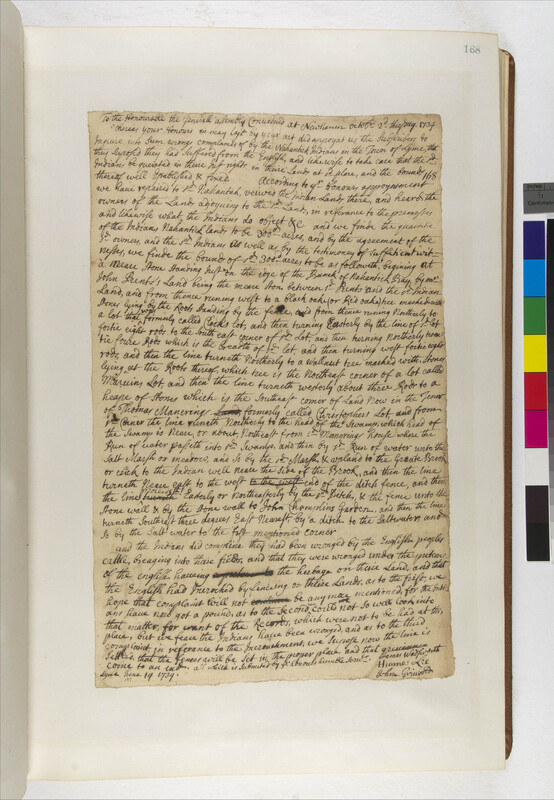 168
To the Honourable the General Assembly Convened at Newhaven October 2d thirsday. 1734
Whereas your Honours in may last by your act did appoynt us the Subscribers to
Inquire into Sum wrongs complained of by the Nahantick Indians in the Town of Lyme, that
they suppose they has Suffered from the English, and likewise to take care that the sd
Indians be quieted in those Just rights in those Lands at sd place, and the bounds
thereof well Established & fixed According to yr Honours appoyntment
168
we have repaired to sd Nahantick, veiwed the Indian Lands there, and heard the
owners of the Lands adjoyning to the sd Land, in reference to the premesses
and likewise what the Indians do object &c and we finde the quantitie
of the Indians Nahantick Land to be 300d acres, and by the agreement of the
sd owners, and the sd Indians as well as by the testimony of sufficient wit=
nesses, we finde the bounds of sd 300d acres to be as followeth, begining at
a meare Stone Standing Just on the edge of the Bank of Nahantick Bay, by mr
John Prents's Land being the meare Ston between sd Prents and the sd Indian
Land, and from thence runing west to a black oak or Red oak tree marked with
Stones lying by the Roots Standing by the fence, and from thence runing Northerly to
a lot that formerly called Cocks lot, and then turning Easterly by the line of sd lot
fortie eight rods to the South east corner of sd Lot, and then turning Northerly nine
tie foure Rods which is the breadth of sd lot and then turning west fortie eight
rods, and then the line turneth Northerly to a wallnut tree marked with Stones
lying at the Roots thereof, which tree is the Northeast corner of a lot called
Lot and then the line turneth westerly about three Rods to a
heape of Stones which is the Southeast corner of Land now in the Tenor
of Thomas Manering formerly called Christophers Lot, and from
sd Corner the line runeth Northerly to the head of the Swamp, which head of
the Swamp is Neare or about Northeast from sd Manerings house where the
Run of water passeth into sd Swamp, and then by sd Run of water unto the
Salt Marsh or meadow, and So by the sd Marsh, & upland to the Brook
or creek to the Indian well neare the side of the Brook, and then the line
turneth Neare east to the west end of the ditch fence, and then
the line runeth Easterly or Northeasterly by the sd Ditch, & the fence unto the
Stone wall & by the Stone wall to John Champlins Garden, and then the line
turneth Southeast three degrees East Nearest, by a ditch to the Saltwater, and
So by the Salt water to the first mentioned Corner
and the Indians did complaine they had been wronged by the English peoples
cattle, breaking into have fields, and that they were wronged under the pretence
of the English haveing the herbage on their Land, and that
the English had Incroched by fencing on their Lands, as to the first, we
hope that complaint will not be any more mentioned, for the Indi
ans have now got a pound, as to the Second could not So well look into
that matter, for want of the Records, which were not to be had at this
place, but we feare the Indians have been wronged, and as to the third
complaint, in reference to the Incrochment, we Suppose now the line is
Setled, that the fences will be Set in the proper place and that
come to an end. all which is Submited by yr Honours humble Servts
Lyme June 19. 1734.
James Wadsworth
Thomas Lee
John Griswold